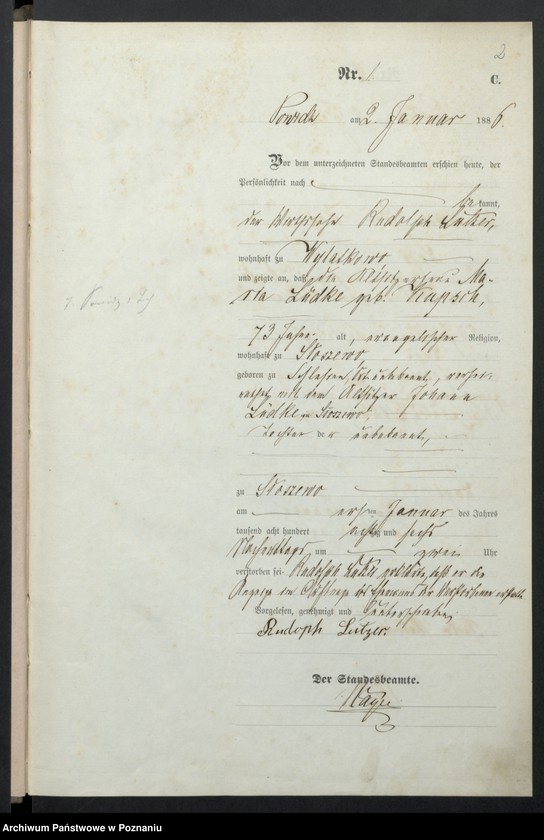 2
Nr. 1.
C.
Powidz am 2. Januar 1886.
Vor dem unterzeichneten Standesbeamten erschien heute, der
Persönlichkeit nach
bekannt,
der Wirthssohn Rudolph Lutzer,
wohnhaft zu Wylatkowo
und zeigte an, daß die Altsitzerfrau Ma-
ria Lüdke geb. Krupsch,
73 Jahre alt, evangelischer Religion,
wohnhaft zu Skorzewo,
geboren zu Schlesien, Ort unbekannt, verhei-
rathet mit dem Altsitzer Johann
Lüdke in Skorzewo,
Tochter der unbekannt,
zu Skorzewo
am ersten Januar des Jahres
tausend acht hundert achtzig und sechs
Nachmittags um zwei Uhr
verstorben sei. Rudolph Lutzer erklärte, daß er die
Anzeige im Auftrage des Ehemanns der Verstorbenen erstatte.
Vorgelesen, genehmigt und unterschrieben
Rudoph Lutzer.
Der Standesbeamte.
Archiwum Państwowe w Poznaniu